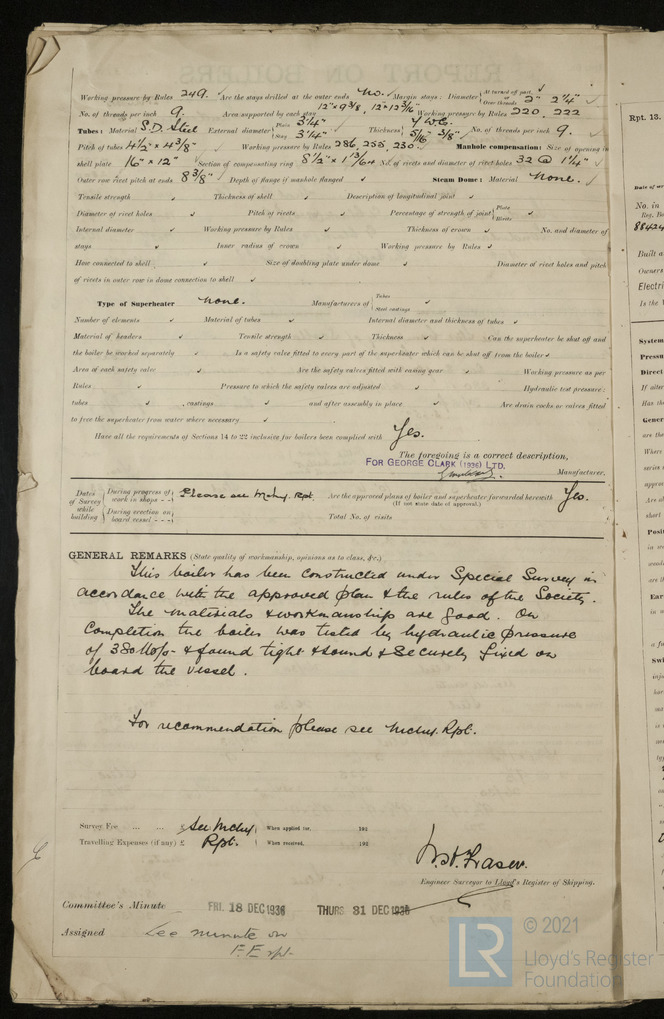 Working pressure by Rules 249. Are the stays drilled at the outer ends No. Margin stays: Diameter At turned off part, Over threads 2" 2¼"
No. of threads per inch 9. Area supported by each stay 12" × 9⅜, 12" × 12 3/16" Working pressure by Rules 220, 222
Tubes: Material S.D. Steel External diameter Plain 3¼" Stay 3¼" Thickness 7 W.G. 5/16" 3/8" No. of threads per inch 9.
Pitch of tubes 4½" × 4⅜" Working pressure by Rules 286, 255, 230 Manhole compensation: Size of opening in
shell plate 16" × 12" Section of compensating ring 8½" × 1 13/64 No. of rivets and diameter of rivet holes 32 @ 1¼"
Outer row rivet pitch at ends 8⅜" Depth of flange if manhole flanged Steam Dome: Material None.
Tensile strength Thickness of shell Description of longitudinal joint
Diameter of rivet holes Pitch of rivets Percentage of strength of joint Plate Rivets
Internal diameter Working pressure by Rules Thickness of crown No. and diameter of
stays Inner radius of crown Working pressure by Rules
How connected to shell Size of doubling plate under dome Diameter of rivet holes and pitch
of rivets in outer row in dome connection to shell
Type of Superheater None. Manufacturers of Tubes Steel castings
Number of elements Material of tubes Internal diameter and thickness of tubes
Material of headers Tensile strength Thickness Can the superheater be shut off and
the boiler be worked separately Is a safety valve fitted to every part of the superheater which can be shut off from the boiler
Area of each safety valve Are the safety valves fitted with easing gear Working pressure as per
Rules Pressure to which the safety valves are adjusted Hydraulic test pressure:
tubes , castings and after assembly in place Are drain cocks or valves fitted
to free the superheater from water where necessary
Have all the requirements of Sections 14 to 22 inclusive for boilers been complied with Yes.
The foregoing is a correct description,
FOR GEORGE CLARK (1936) LTD.
Manufacturer.
Dates of Survey while building During progress of work in shops - - Please see Mchy. Rpt. Are the approved plans of boiler and superheater forwarded herewith Yes.
(If not state date of approval.)
During erection on board vessel - - - Total No. of visits
GENERAL REMARKS (State quality of workmanship, opinions as to class, &c.)
This boiler has been constructed under Special Survey in
accordance with the approved plan & the rules of the Society.
The materials & workmanship are good. On
Completion the boiler was tested by hydraulic pressure
of 380 lbs & found tight & sound & securely fixed on
board the vessel.
For recommendation please see Mchy. Rpt.
Survey Fee ... ... £ See Mchy When applied for, 192
Travelling Expenses (if any) £ Rpt. When received, 192
W. H. Fraser.
Engineer Surveyor to Lloyd's Register of Shipping.
Committee's Minute FRI. 18 DEC 1936 THURS. 31 DEC 1936
Assigned See minute on
F.E. rpt.
Rpt. 13.
No. in
Reg. Bo
88424
Built a
Owners
Electri
Is the
System
Pressu
Direct
If alter
Has th
Gener
are the
Where
series
approv
Are a
short
Posit
© 2021
Lloyd's Register
Foundation
LR